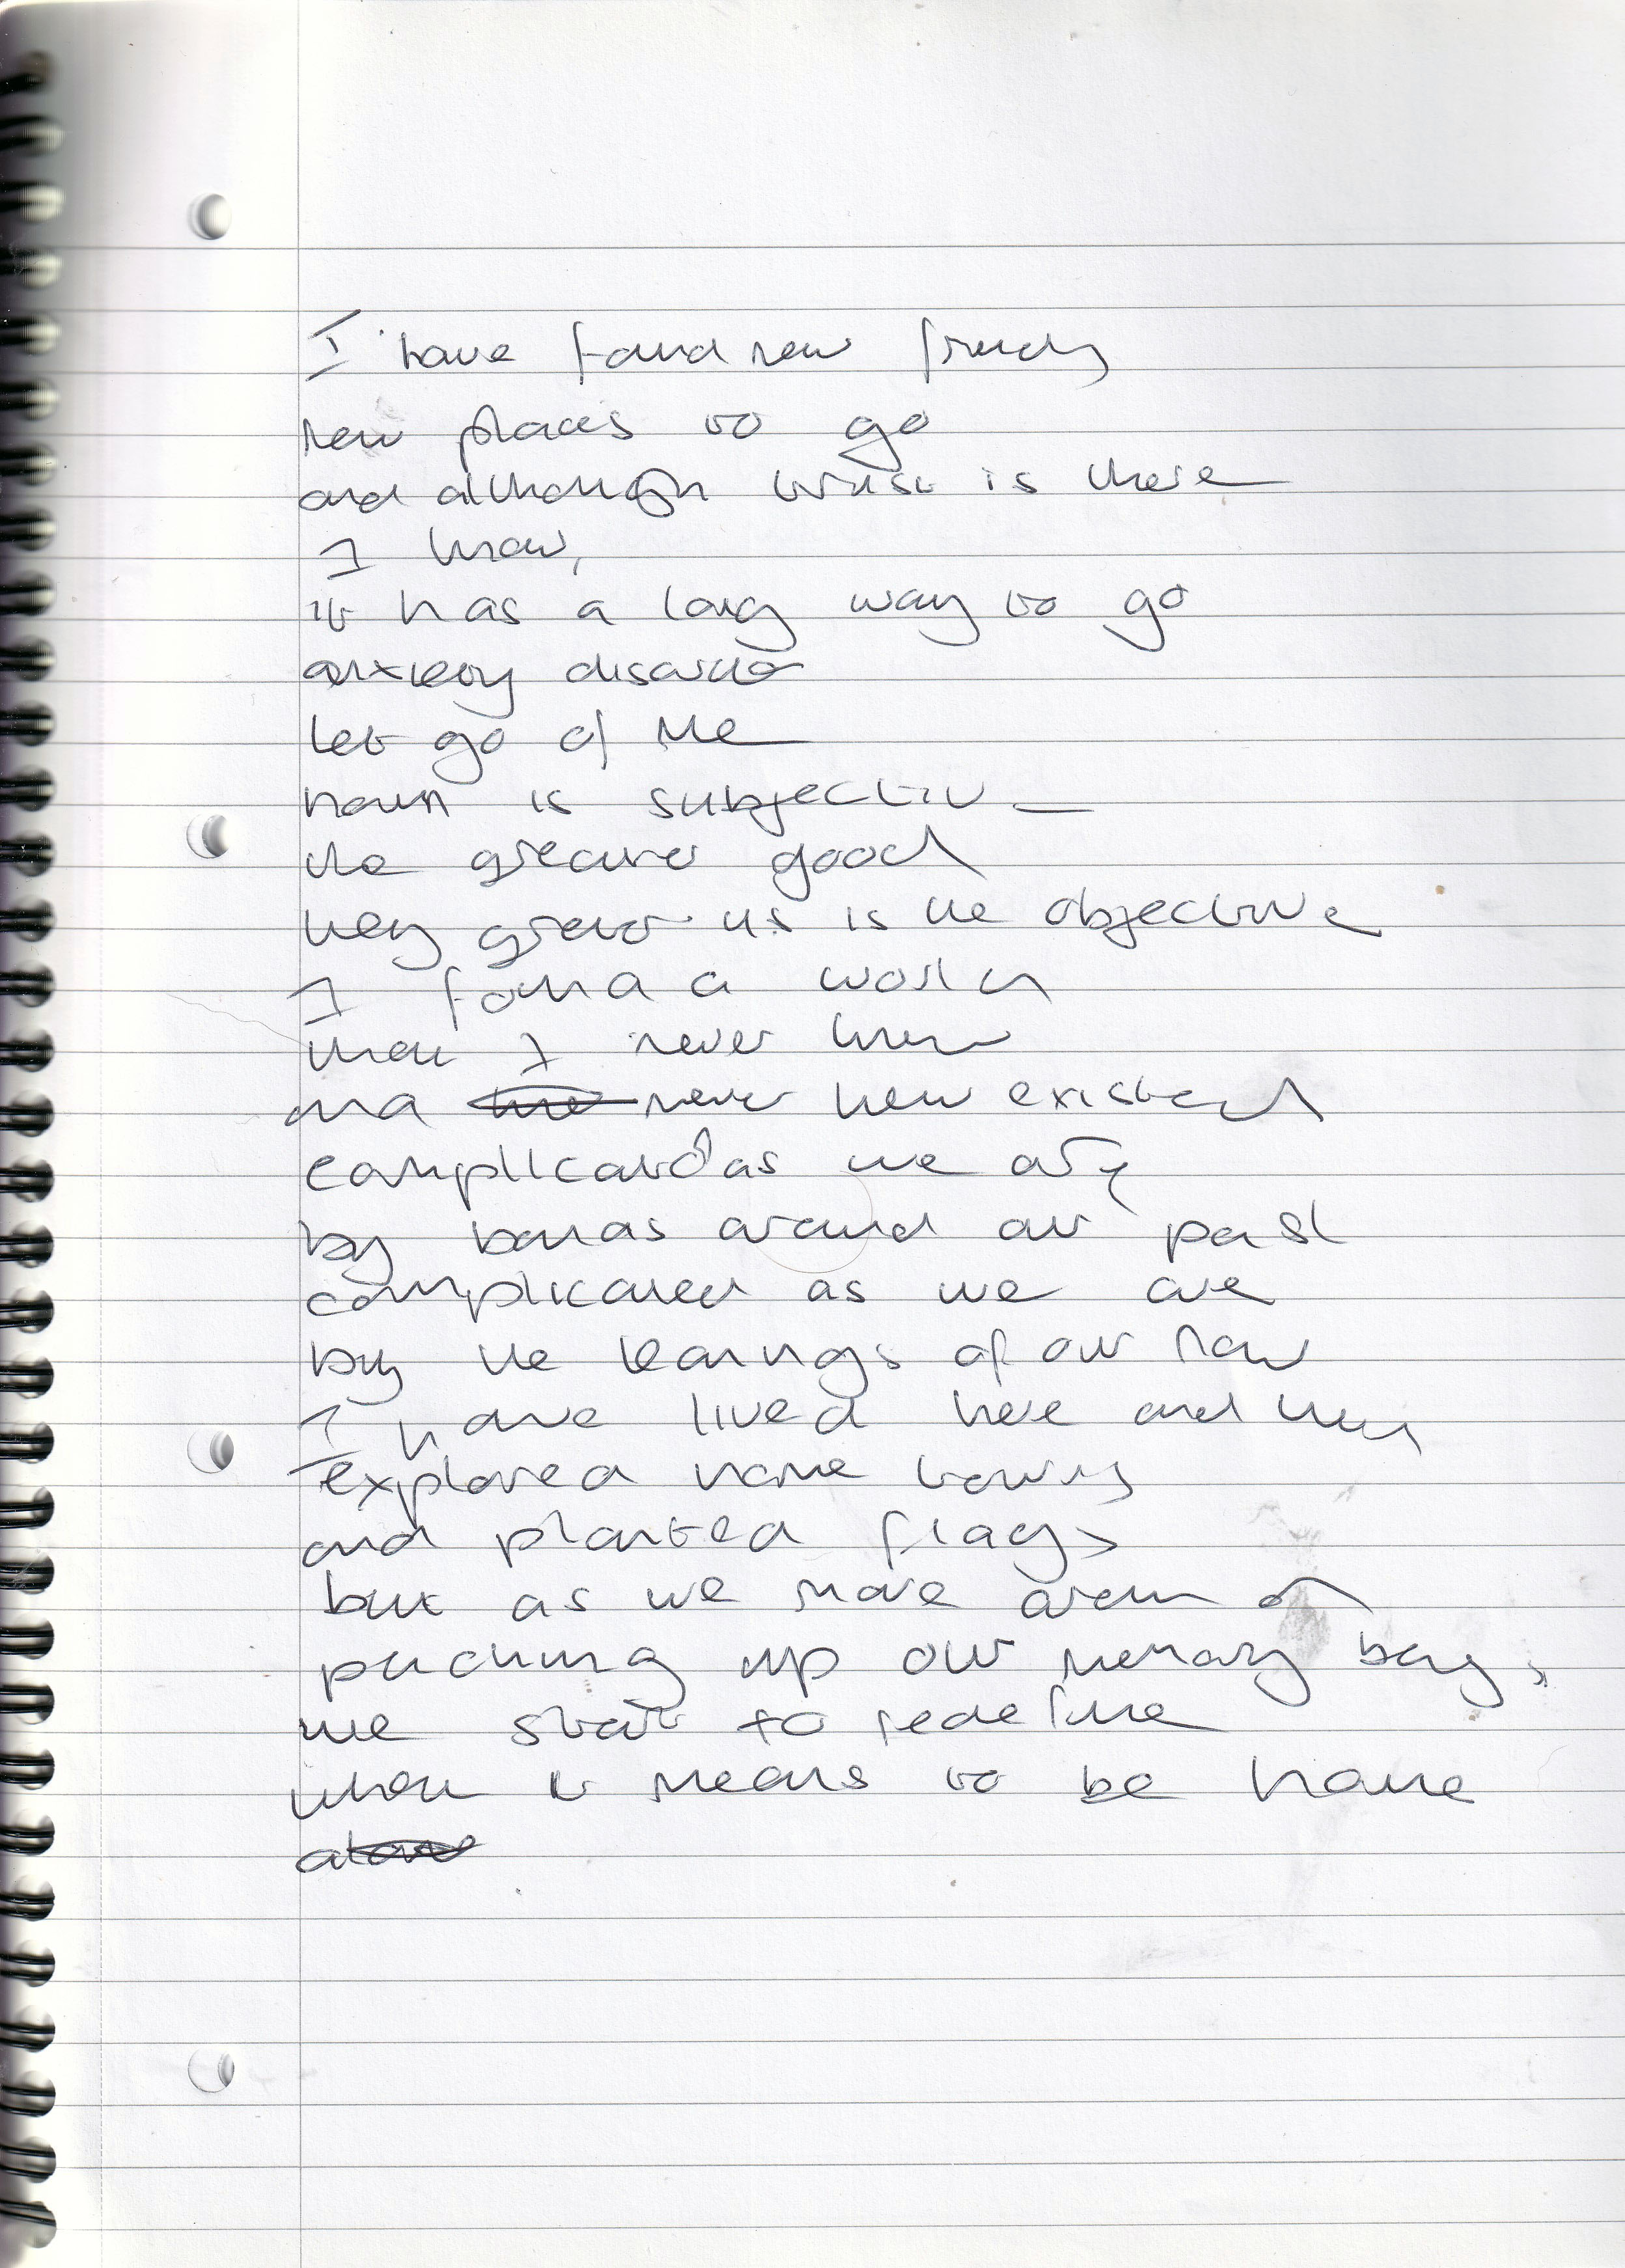 I have found new friends
new places to go
and although trust is there
I know,
it has a long way to go
anxiety disorder
let go of me
harm is subjective
the greater good
they groom us is the objective
I found a world
that I never knew
and never knew existed
complicated as we are
by bonds around our past
complicated as we are
by the learnings of our now
I have lived here and there
explored home towns
and planted flags
but as we move around
packing up our memory bags
we start to redefine
what it means to be home